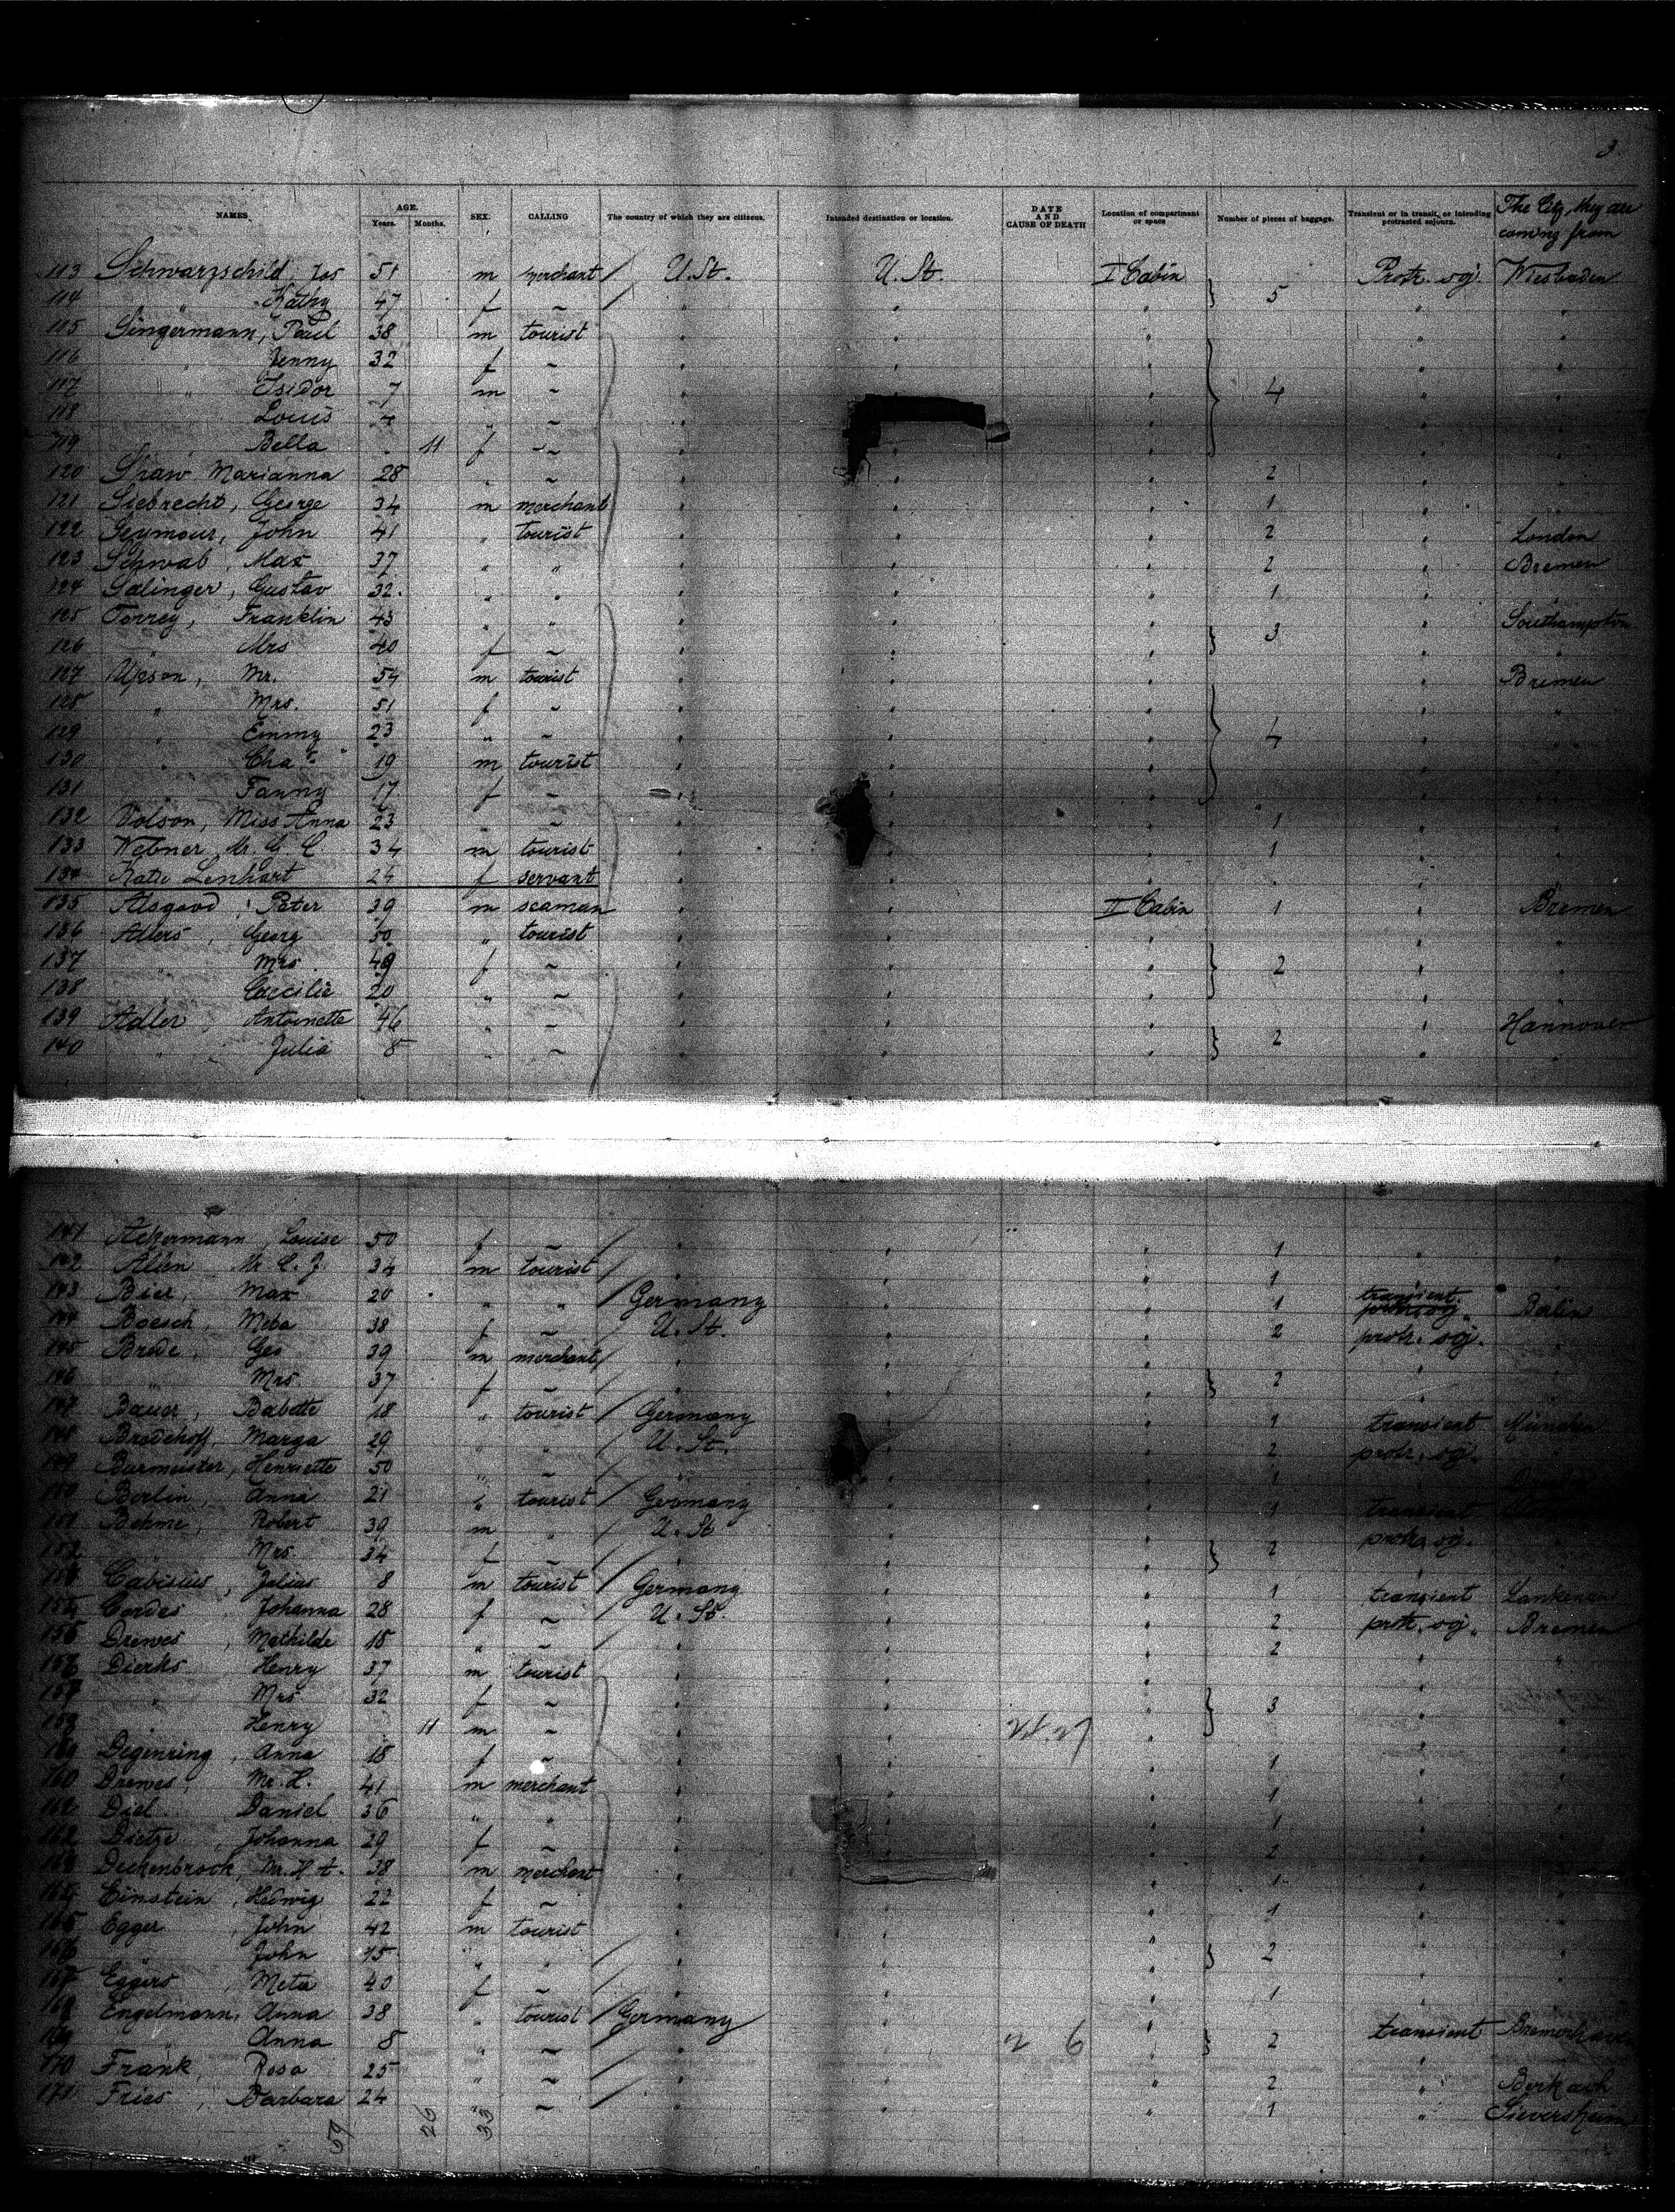 3
NAMES. AGE. Years. Months. SEX. CALLING The country of which they are citizens. Intended destination or location. DATE AND CAUSE OF DEATH Location of compartment or space Number of pieces of baggage. Transient or in transit, or intending protracted sojourn. The City, they are coming from
113 Schwarzschild, Jos 51 m merchant / U. St. U. St. I Cabin Protr. soj. Wiesbaden
114 " Kathy 47 f ~ / " " " } 5 " "
115 Singermann, Paul 38 m tourist " " " " "
116 " Jenny 32 f ~ " " " " "
117 " Isidor 7 m ~ " " " } 4 " "
118 Louis 4 " ~ " " " " "
119 Bella 11 f ~ " " " " "
120 Marianna 28 " ~ " " " 2 " "
121 Siebrecht, George 34 m merchant " " " 1 " "
122 Seymour, John 41 " tourist " " " 2 " London
123 Schwab, Max 37 " " " " " 2 " Bremen
124 Salinger, Gustav 32. " " " " " 1 " "
125 Torrey, Franklin 43 " " " " " " Southampton
126 " Mrs 40 f ~ " " " } 3 " "
127 Upson, Mr. 54 m tourist " " " " Bremen
128 " Mrs. 51 f ~ " " " " "
129 " Emmy 23 " ~ " " " } 4 " "
130 " Chas 19 m tourist " " " " "
131 " Fanny 17 f ~ " " " " "
132 Volson, Miss Anna 23 " ~ " " " 1 " "
133 Mr. G C. 34 m tourist " " " 1 " "
134 Katie Lenhart 24 f servant " " " " "
135 Alsgood, Peter 39 m seaman " " II Cabin 1 " Bremen
136 Adlers, Georg 50 " tourist " " " " "
137 " Mrs. 49 f ~ " " " } 2 " "
138 Caecilie 20 " ~ " " " " "
139 Adler, Antoinette 46 " ~ " " " " Hannover
140 " Julia 8 " ~ " " " } 2 " "
141 Ackermann, Louise 50 f ~ / " " " 1 " "
142 Allen Mr C. J. 34 m tourist / " " " 1 " "
143 Bier, Max 20 " " / Germany " " 1 transient Berlin
144 Boesch, Meba 38 f ~ / U. St. " " 2 protr. soj. "
145 Brede, Geo 39 m merchant / " " " " "
146 " Mrs 37 f ~ / " " " } 2 " "
147 Bauer, Babette 18 " tourist / Germany " " 1 transient München
148 Bredehoff, Marga 29 " " U. St. " " 2 protr. soj. "
149 Burmeister, Henriette 50 " ~ " " " 1 "
150 Berlin, Anna 21 " tourist / Germany " " 1 transient
151 Behme, Robert 39 m " / U. St " " protr. soj.
152 " Mrs. 34 f ~ / " " " } 2 "
Cabisius, Julius 8 m tourist / Germany " " 1 transient
154 Cordes Johanna 28 f ~ / U. St. " " 2 protr. soj. Bremen
155 Drewes, Mathilde 18 " ~ " " " 2 " "
Dierks Henry 37 m tourist " " " " "
157 " Mrs 32 f ~ " " " } 3 " "
Henry 11 m ~ " " " " "
159 Degenring, Anna 18 f ~ " " " 1 " "
160 Drewes, Mr. H. 41 m merchant " " " 1 " "
Diel Daniel 36 " " " " " 1 " "
162 Dietze, Johanna 29 f ~ " " " 2 " "
Deckenbrock, Mr. H A. 38 m merchant " " " 1 " "
Einstein, Hedwig 22 f ~ " " " 1 " "
165 Egger, John 42 m tourist " " " " "
" John 15 " " / " " " } 2 " "
167 Eggers, Meta 40 f ~ / " " " 1 " "
Engelmann, Anna 38 " tourist / Germany " " transient Bremerhaven
169 " Anna 8 " ~ / " " " } 2 " "
170 Frank, Rosa 25 " ~ / " " " 2 " Berkach
171 Fries, Barbara 24 " ~ / " " " 1 " Sieversheim
59 26 33